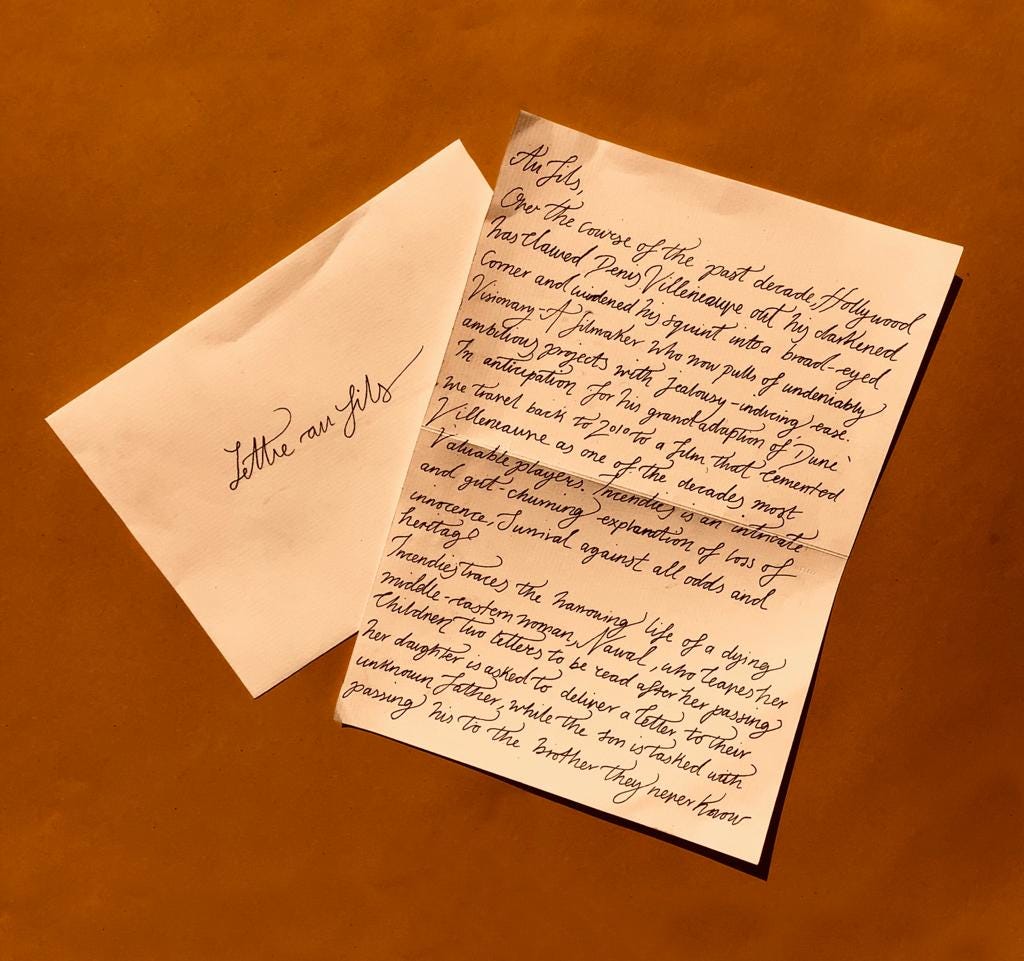 Lettre au fils
Au fils,
Over the course of the past decade, Hollywood
has clawed Denis Villeneauve out his darkened
Corner and widened his squint into a broad-eyed
Visionary-A filmaker who now pulls of undeniably
ambitious projects with jealousy-inducing ease.
In anticipation for his grand adaption of 'Dune'
we travel back to 2010 to a film that cemented
Villeneauve as one of the decades most
Valuable players. Incendies is an intricate
and gut-churning explanation of loss of
innocence, Survival against all odds and
heritage
Incendies traces the harrowing life of a dying
middle-eastern woman, Nawal, who leaves her
Children two letters to be read after her passing
her daughter is asked to deliver a letter to their
unknown father, while the son is tasked with
passing his to the brother they never Know